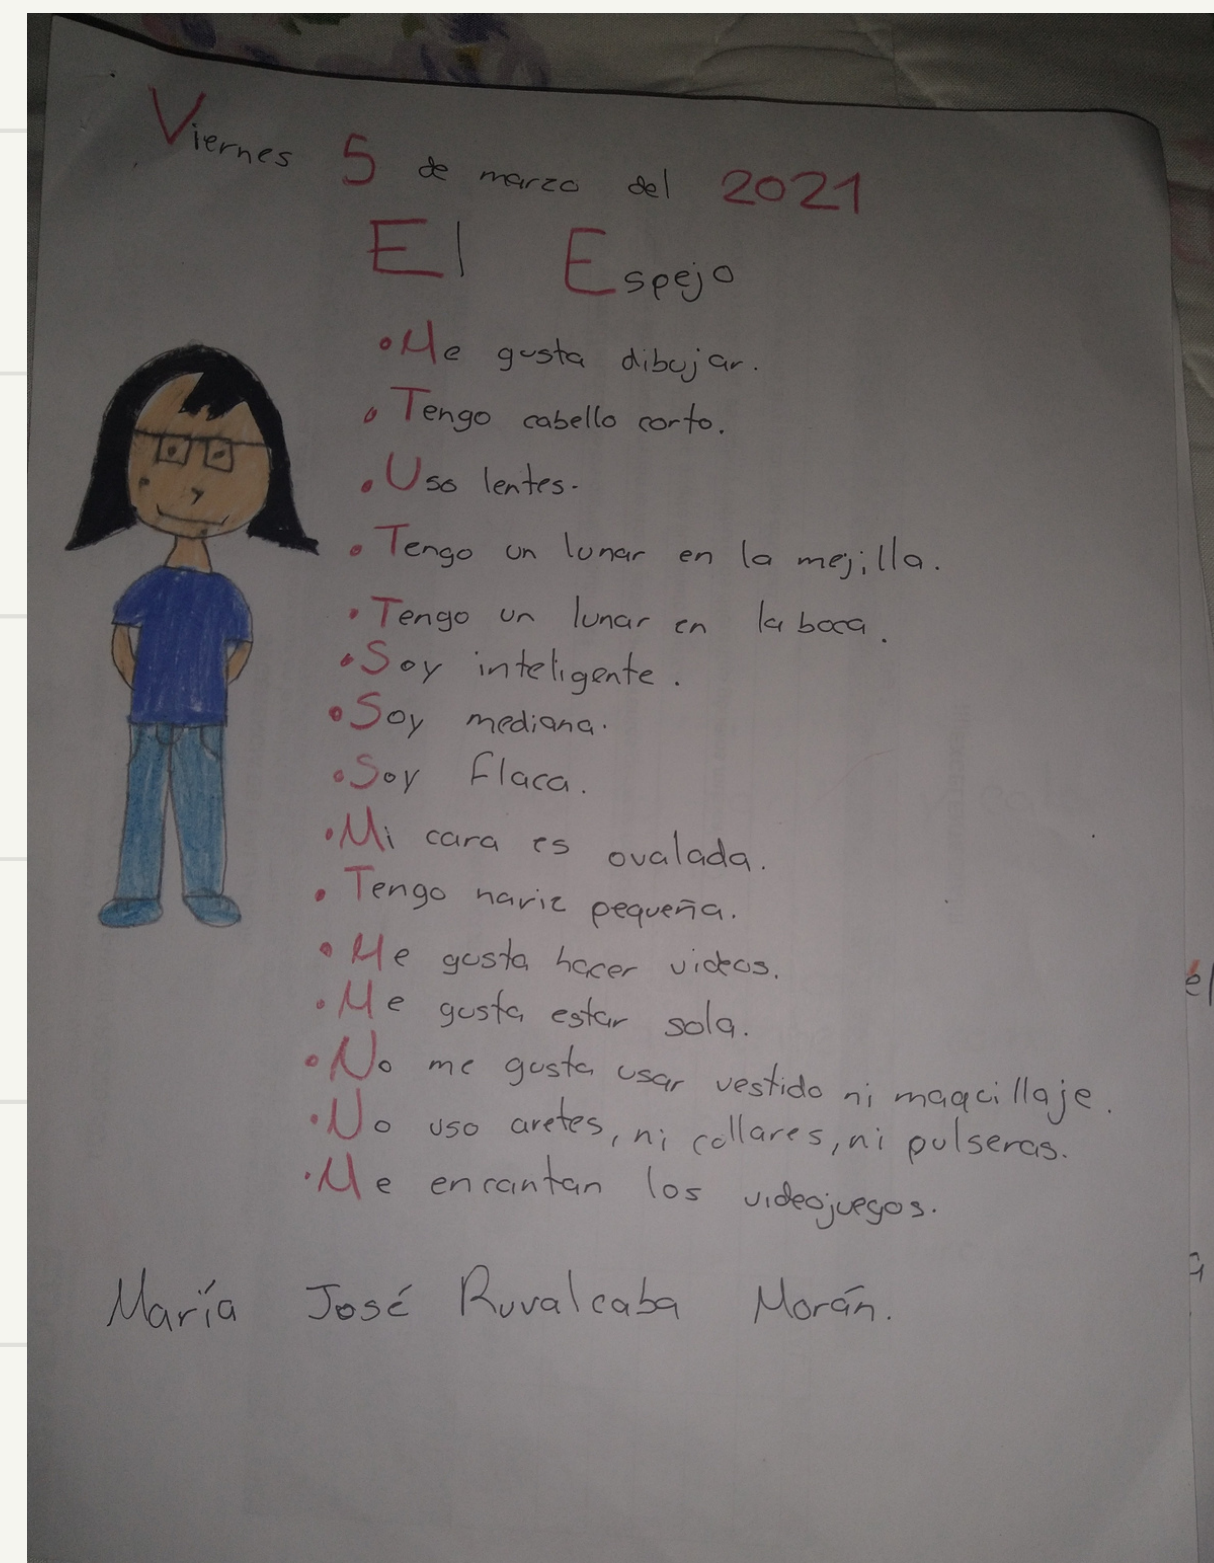 Viernes 5 de marzo del 2021
El Espejo
• Me gusta dibujar.
• Tengo cabello corto.
• Uso lentes.
• Tengo un lunar en la mejilla.
• Tengo un lunar en la boca.
• Soy inteligente.
• Soy mediana.
• Soy flaca.
• Mi cara es ovalada.
• Tengo nariz pequeña.
• Me gusta hacer videos.
• Me gusta estar sola.
• No me gusta usar vestido ni maqcillaje.
• No uso aretes, ni collares, ni pulseras.
• Me encantan los videojuegos.
María José Ruvalcaba Morán.